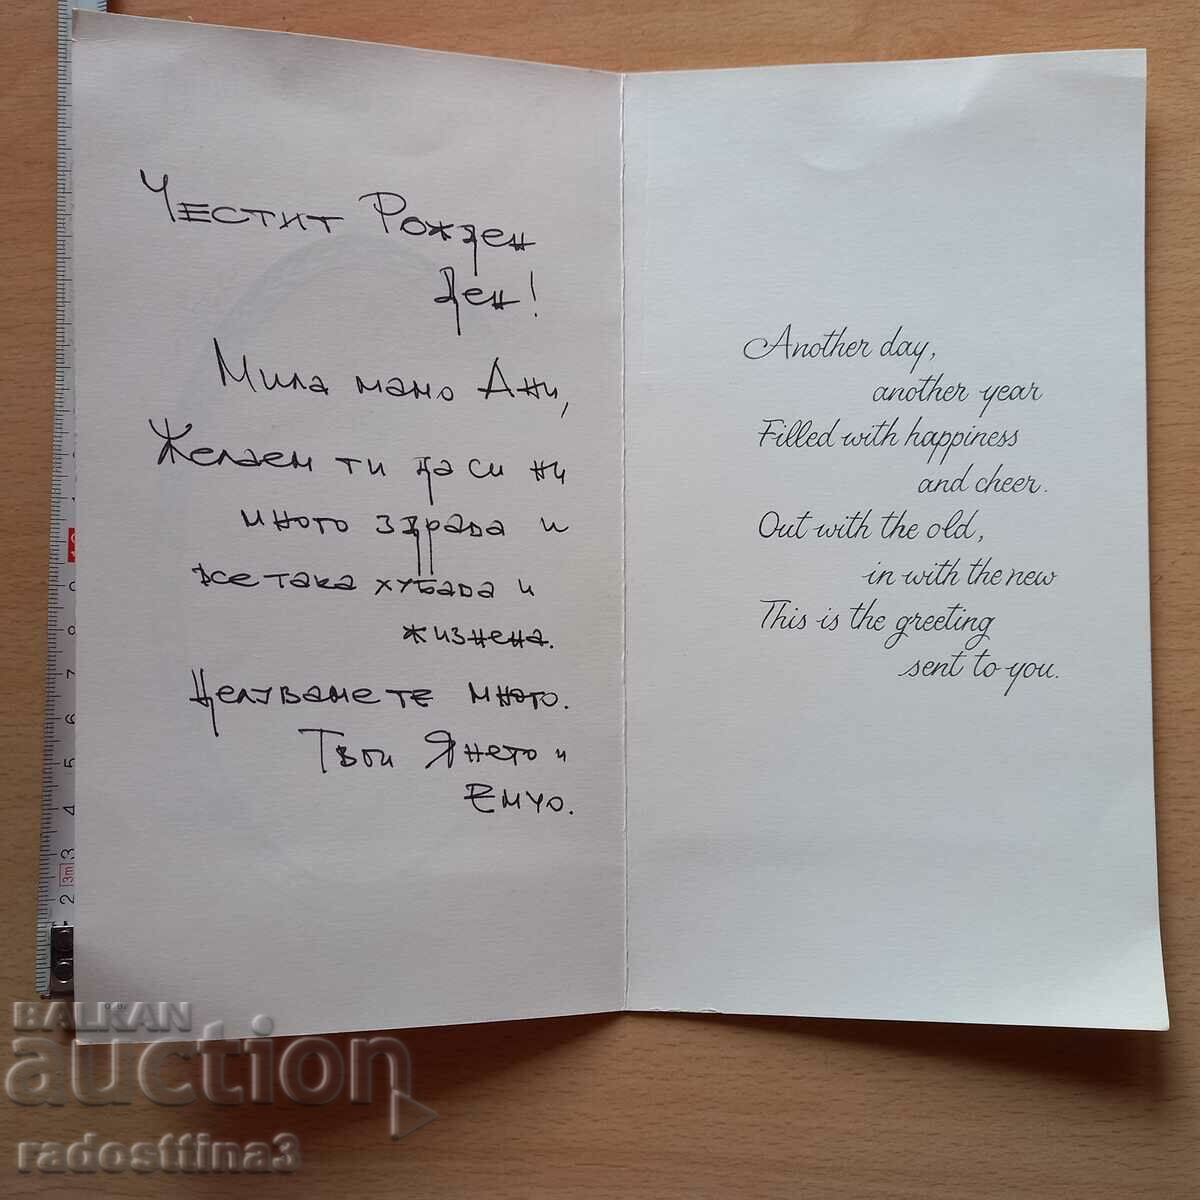 Честит Рожден
Ден!
Мила мамо Ани,
Желаем ти да си ни
много здрава и
все така хубава и
жизнена.
Целуваме те много.
Твои Янето и
Емчо.
Another day,
another year
Filled with happiness
and cheer.
Out with the old,
in with the new
This is the greeting
sent to you.
3m
2 3 4 5 6 7 8 9
BALKAN
auction
radosttina3